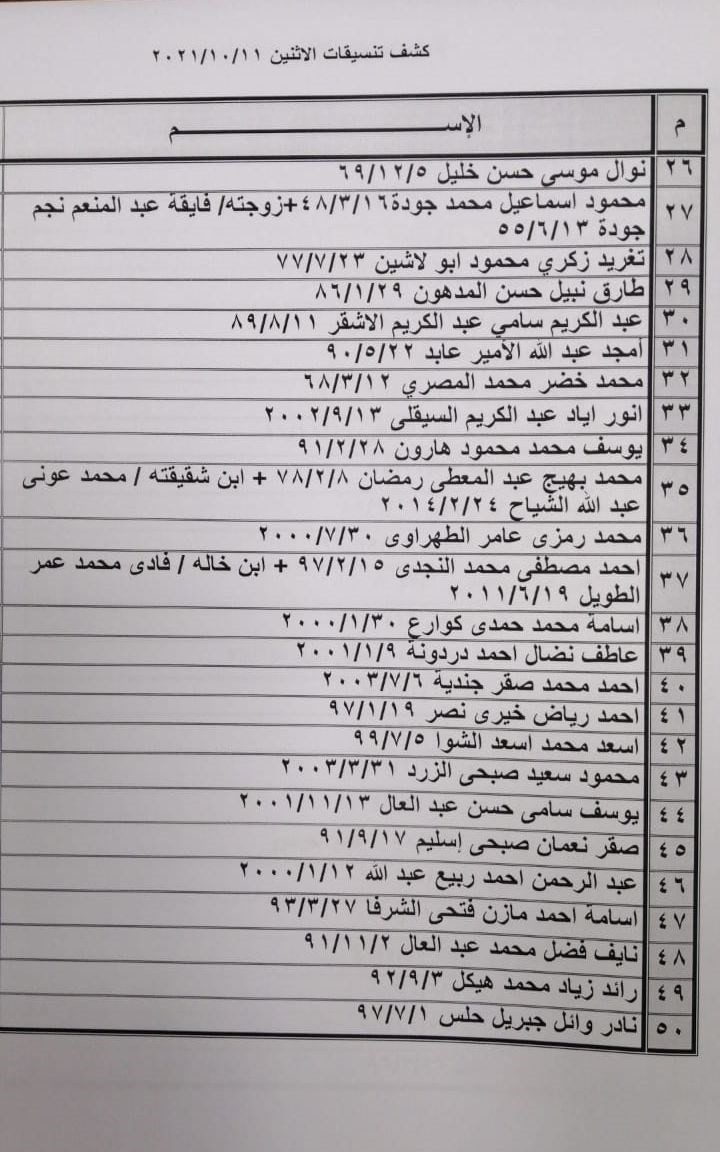 كشف تنسيقات الاثنين ٢٠٢١/١٠/١١
م الإســـــــــــــــــــــم
٢٦ نوال موسى حسن خليل ٦٩/١٢/٥
٢٧ محمود اسماعيل محمد جودة٤٨/٣/١٦+زوجته/ فايقة عبد المنعم نجم
جودة ٥٥/٦/١٣
٢٨ تغريد زكري محمود ابو لاشين ٧٧/٧/٢٣
٢٩ طارق نبيل حسن المدهون ٨٦/١/٢٩
٣٠ عبد الكريم سامي عبد الكريم الاشقر ٨٩/٨/١١
٣١ أمجد عبد الله الأمير عابد ٩٠/٥/٢٢
٣٢ محمد خضر محمد المصري ٦٨/٣/١٢
٣٣ انور اياد عبد الكريم السيقلى ٢٠٠٢/٩/١٣
٣٤ يوسف محمد محمود هارون ٩١/٢/٢٨
٣٥ محمد بهيج عبد المعطى رمضان ٧٨/٢/٨ + ابن شقيقته / محمد عونى
عبد الله الشياح ٢٠١٤/٢/٢٤
٣٦ محمد رمزى عامر الطهراوى ٢٠٠٠/٧/٣٠
٣٧ احمد مصطفى محمد النجدى ٩٧/٢/١٥ + ابن خاله / فادى محمد عمر
الطويل ٢٠١١/٦/١٩
٣٨ اسامة محمد حمدى كوارع ٢٠٠٠/١/٣٠
٣٩ عاطف نضال احمد دردونة ٢٠٠١/١/٩
٤٠ احمد محمد صقر جندية ٢٠٠٣/٧/٦
٤١ احمد رياض خيرى نصر ٩٧/١/١٩
٤٢ اسعد محمد اسعد الشوا ٩٩/٧/٥
٤٣ محمود سعيد صبحى الزرد ٢٠٠٣/٣/٣١
٤٤ يوسف سامى حسن عبد العال ٢٠٠١/١١/١٣
٤٥ صقر نعمان صبحى إسليم ٩١/٩/١٧
٤٦ عبد الرحمن احمد ربيع عبد الله ٢٠٠٠/١/١٢
٤٧ اسامة احمد مازن فتحى الشرفا ٩٣/٣/٢٧
٤٨ نايف فضل محمد عبد العال ٩١/١١/٢
٤٩ رائد زياد محمد هيكل ٩٢/٩/٣
٥٠ نادر وائل جبريل حلس ٩٧/٧/١